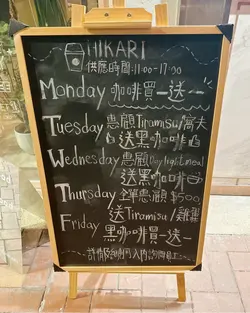 HIKARI
供應時間:11:00-17:00
Monday 咖啡買一送一
Tuesday 惠顧Tiramisu/窩夫
送黑咖啡
Wednesday 惠顧Daylight meal
送黑咖啡
Thursday 全單惠顧$500
送Tiramisu/雞蛋
Friday 黑咖啡買一送一
詳情